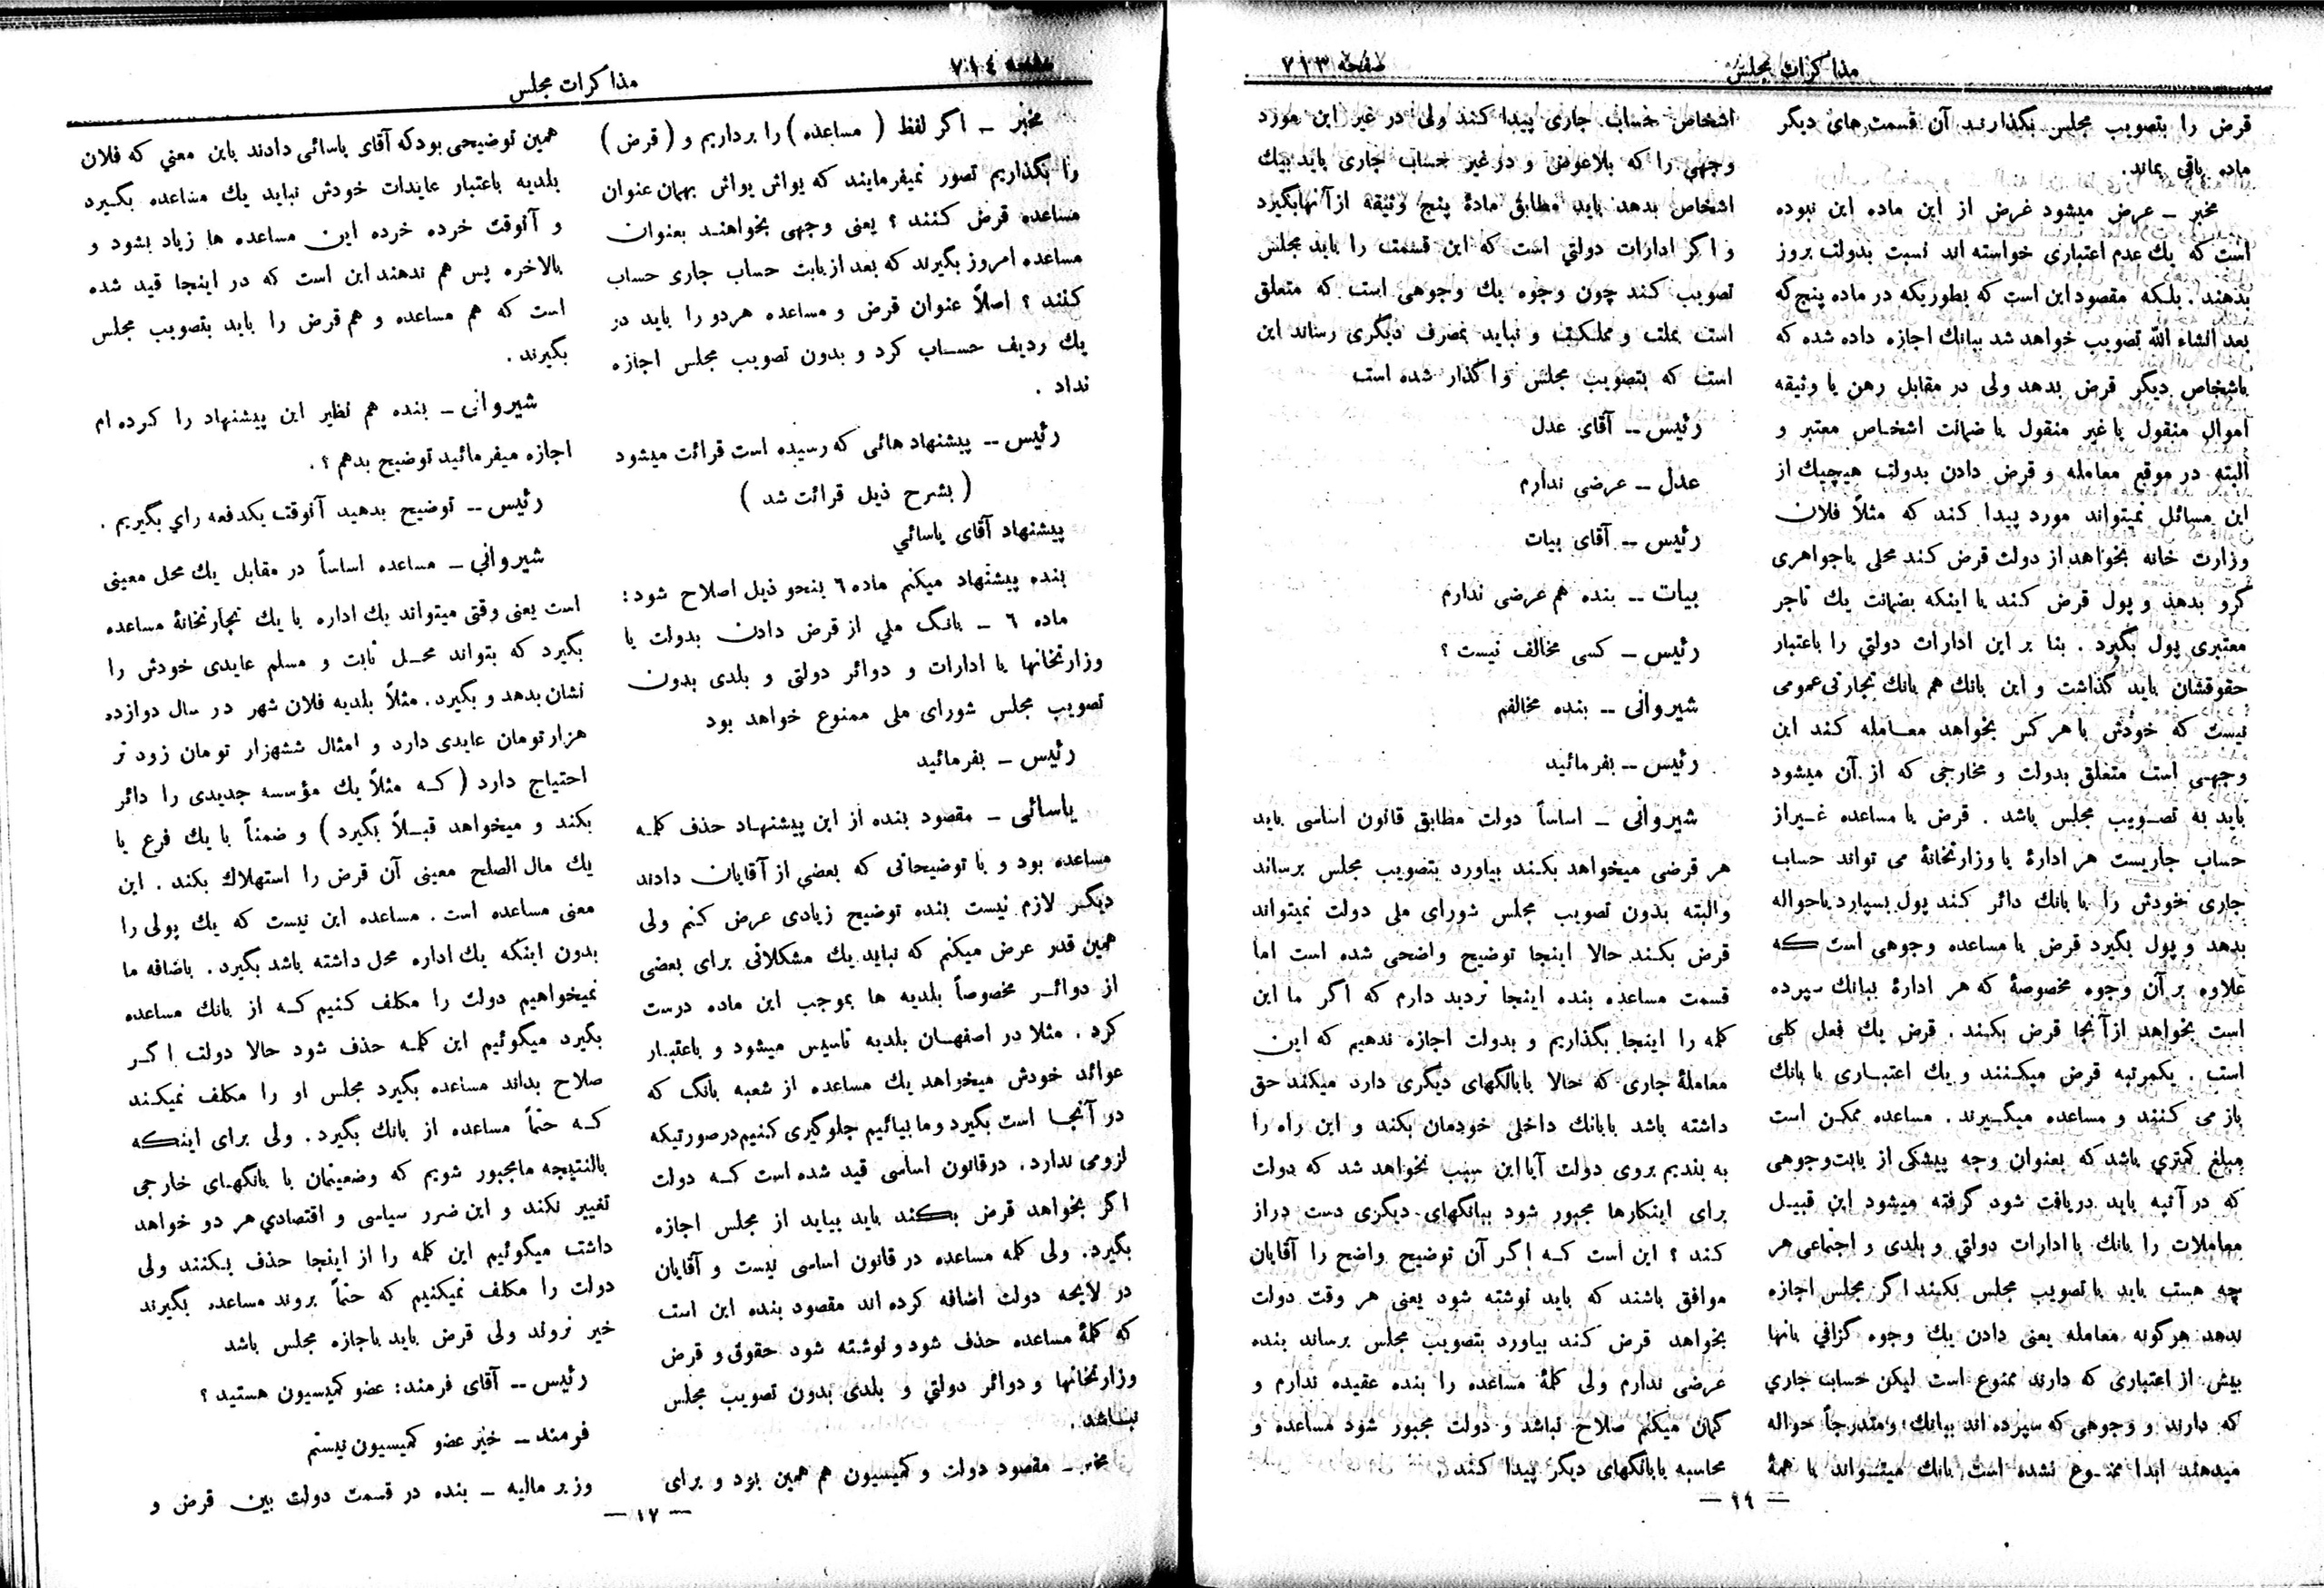 مذاکرات مجلس
صفحه ۷۱۳
قرض را بتصویب مجلس بگذارند آن قسمت‌های دیگر
ماده باقی بماند.
مخبر ــ عرض میشود غرض از این ماده این نبوده
است که یك عدم اعتباری خواسته اند نسبت بدولت بروز
بدهند. بلکه مقصود این است که بطوریکه در ماده پنج که
بعد انشاء الله تصویب خواهد شد ببانك اجازه داده شده که
باشخاص دیگر قرض بدهد ولی در مقابل رهن یا وثیقه
اموال منقول یا غیر منقول یا ضمانت اشخاص معتبر و
البته در موقع معامله و قرض دادن بدولت هیچیك از
این مسائل نمیتواند مورد پیدا کند که مثلاً فلان
وزارت خانه بخواهد از دولت قرض کند محلی یا جواهری
گرو بدهد و پول قرض کند یا اینکه بضمانت یك تاجر
معتبری پول بگیرد. بنا بر این ادارات دولتی را باعتبار
حقوقشان باید گذاشت و این بانك هم بانك تجارتی عمومی
نیست که خودش با هر کس بخواهد معامله کند این
وجهی است متعلق بدولت و مخارجی که از آن میشود
باید به تصویب مجلس باشد. قرض یا مساعده غیر از
حساب جاریست هر ادارۀ یا وزارتخانۀ می تواند حساب
جاری خودش را با بانك دائر کند پول بسپارد یا حواله
بدهد و پول بگیرد قرض یا مساعده وجوهی است که
علاوه بر آن وجوه مخصوصۀ که هر ادارۀ ببانك سپرده
است بخواهد از آنجا قرض بکند. قرض یك فعل کلی
است. یکمرتبه قرض میکنند و یك اعتباری با بانك
باز می کنند و مساعده میگیرند. مساعده ممکن است
مبلغ کمتری باشد که بعنوان وجه پیشکی از بابت وجوهی
که در آتیه باید دریافت شود گرفته میشود این قبیل
معاملات را بانك با ادارات دولتی و بلدی و اجتماعی هر
چه هست باید با تصویب مجلس بکند اگر مجلس اجازه
ندهد هرگونه معامله یعنی دادن یك وجوه گزافی بانها
بیش از اعتباری که دارند ممنوع است لیکن حساب جاری
که دارند و وجوهی که سپرده اند ببانك و متدرجاً حواله
میدهند ابدا ممنوع نشده است بانك میتواند با همۀ
اشخاص حساب جاری پیدا کند ولی در غیر این مورد
وجهی را که بلاعوض و در غیر حساب جاری باید بیك
اشخاص بدهد باید مطابق مادۀ پنج وثیقه از آنها بگیرد
و اگر ادارات دولتی است که این قسمت را باید مجلس
تصویب کند چون وجوه یك وجوهی است که متعلق
است بملت و مملکت و نباید بمصرف دیگری رساند این
است که بتصویب مجلس واگذار شده است
رئیس ــ آقای عدل
عدل ــ عرضی ندارم
رئیس ــ آقای بیات
بیات ــ بنده هم عرضی ندارم
رئیس ــ کسی مخالف نیست؟
شیروانی ــ بنده مخالفم
رئیس ــ بفرمائید
شیروانی ــ اساساً دولت مطابق قانون اساسی باید
هر قرضی میخواهد بکند بیاورد بتصویب مجلس برساند
والبته بدون تصویب مجلس شورای ملی دولت نمیتواند
قرض بکند حالا اینجا توضیح واضحی شده است اما
قسمت مساعده بنده اینجا تردید دارم که اگر ما این
کله را اینجا بگذاریم و بدولت اجازه ندهیم که این
معاملۀ جاری که حالا با بانگهای دیگری دارد میکند حق
داشته باشد با بانك داخلی خودمان بکند و این راه را
به بندیم بروی دولت آیا این سبب نخواهد شد که دولت
برای اینکارها مجبور شود ببانگهای دیگری دست دراز
کند؟ این است که اگر آن توضیح واضح را آقایان
موافق باشند که باید نوشته شود یعنی هر وقت دولت
بخواهد قرض کند بیاورد بتصویب مجلس برساند بنده
عرضی ندارم ولی کلۀ مساعده را بنده عقیده ندارم و
گمان میکنم صلاح نباشد و دولت مجبور شود مساعده و
محاسبه با بانگهای دیگر پیدا کند.
ــ ۱۶ ــ
صفحه ۷۱۴
مذاکرات مجلس
مخبر ــ اگر لفظ (مساعده) را برداریم و (قرض)
را بگذاریم تصور نمیفرمایند که یواش یواش بهمان عنوان
مساعده قرض کنند؟ یعنی وجهی بخواهند بعنوان
مساعده امروز بگیرند که بعد از بابت حساب جاری حساب
کنند؟ اصلاً عنوان قرض و مساعده هردو را باید در
یك ردیف حساب کرد و بدون تصویب مجلس اجازه
نداد.
رئیس ــ پیشنهاد هائی که رسیده است قرائت میشود
(بشرح ذیل قرائت شد)
پیشنهاد آقای یاسائی
بنده پیشنهاد میکنم ماده ۶ بنحو ذیل اصلاح شود:
ماده ۶ ــ بانگ ملی از قرض دادن بدولت یا
وزارتخانها یا ادارات و دوائر دولتی و بلدی بدون
تصویب مجلس شورای ملی ممنوع خواهد بود
رئیس ــ بفرمائید
یاسائی ــ مقصود بنده از این پیشنهاد حذف کله
مساعده بود و با توضیحاتی که بعضی از آقایان دادند
دیگر لازم نیست بنده توضیح زیادی عرض کنم ولی
همین قدر عرض میکنم که نباید یك مشکلاتی برای بعضی
از دوائر مخصوصاً بلدیه ها بموجب این ماده درست
کرد. مثلا در اصفهان بلدیه تاسیس میشود و باعتبار
عوائد خودش میخواهد یك مساعده از شعبه بانگ که
در آنجا است بگیرد و ما بیائیم جلوگیری کنیم در صورتیکه
لزومی ندارد. در قانون اساسی قید شده است که دولت
اگر بخواهد قرض بکند باید بیاید از مجلس اجازه
بگیرد. ولی کله مساعده در قانون اساسی نیست و آقایان
در لایحه دولت اضافه کرده اند مقصود بنده این است
که کلۀ مساعده حذف شود و نوشته شود حقوق و قرض
وزارتخانها و دوائر دولتی و بلدی بدون تصویب مجلس
نباشد.
مخبر ــ مقصود دولت و کمیسیون هم همین بود و برای
همین توضیحی بود که آقای یاسائی دادند باین معنی که فلان
بلدیه باعتبار عایدات خودش نباید یك مساعده بگیرد
و آنوقت خرده خرده این مساعده ها زیاد بشود و
بالاخره پس هم ندهند این است که در اینجا قید شده
است که هم مساعده و هم قرض را باید بتصویب مجلس
بگیرند.
شیروانی ــ بنده هم نظیر این پیشنهاد را کرده ام
اجازه میفرمائید توضیح بدهم؟.
رئیس ــ توضیح بدهید آنوقت یکدفعه رای بگیریم.
شیروانی ــ مساعده اساساً در مقابل یك محل معینی
است یعنی وقتی میتواند یك اداره یا یك تجارتخانۀ مساعده
بگیرد که بتواند محل ثابت و مسلم عایدی خودش را
نشان بدهد و بگیرد. مثلاً بلدیه فلان شهر در سال دوازده
هزار تومان عایدی دارد و امثال ششهزار تومان زود تر
احتیاج دارد (که مثلاً یك مؤسسه جدیدی را دائر
بکند و میخواهد قبلاً بگیرد) و ضمناً با یك فرع یا
یك مال الصلح معینی آن قرض را استهلاك بکند. این
معنی مساعده است. مساعده این نیست که یك پولی را
بدون اینکه یك اداره محل داشته باشد بگیرد. باضافه ما
نمیخواهیم دولت را مکلف کنیم که از بانك مساعده
بگیرد میگوئیم این کله حذف شود حالا دولت اگر
صلاح بداند مساعده بگیرد مجلس او را مکلف نمیکند
که حتماً مساعده از بانك بگیرد. ولی برای اینکه
بالنتیجه ما مجبور شویم که وضعیتمان با بانگهای خارجی
تغییر نکند و این ضرر سیاسی و اقتصادی هر دو خواهد
داشت میگوئیم این کله را از اینجا حذف بکنند ولی
دولت را مکلف نمیکنیم که حتماً بروند مساعده بگیرند
خیر نروند ولی قرض باید باجازه مجلس باشد
رئیس ــ آقای فرمند: عضو کمیسیون هستید؟
فرمند ــ خیر عضو کمیسیون نیستم
وزیر مالیه ــ بنده در قسمت دولت بین قرض و
ــ ۱۷ ــ